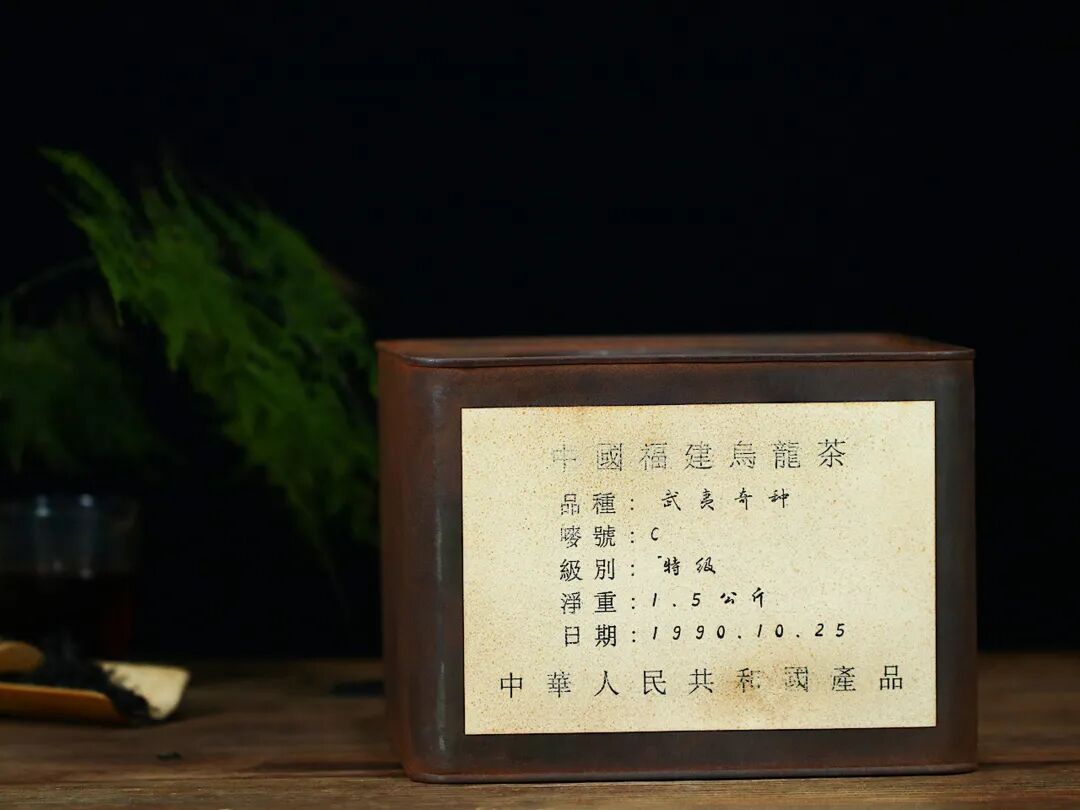 中國福建烏龍茶
品種：武夷奇种
嘜號：C
級別：特级
淨重：1.5公斤
日期：1990.10.25
中華人民共和國產品